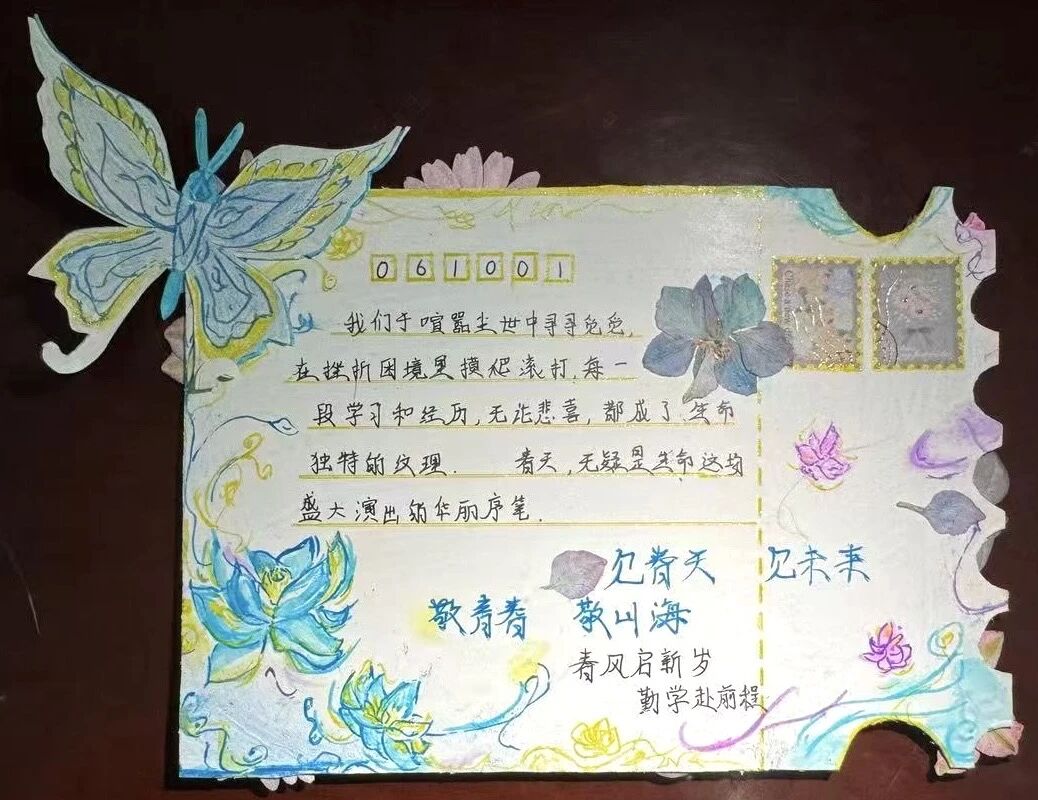 061001
我们于喧嚣尘世中寻寻觅觅,
在挫折困境里摸爬滚打.每一
段学习和经历,无论悲喜,都成了生命
独特的纹理. 春天,无疑是生命这场
盛大演出的华丽序笔.
见春天 见未来
敬青春 敬山海
春风启新岁
勤学赴前程